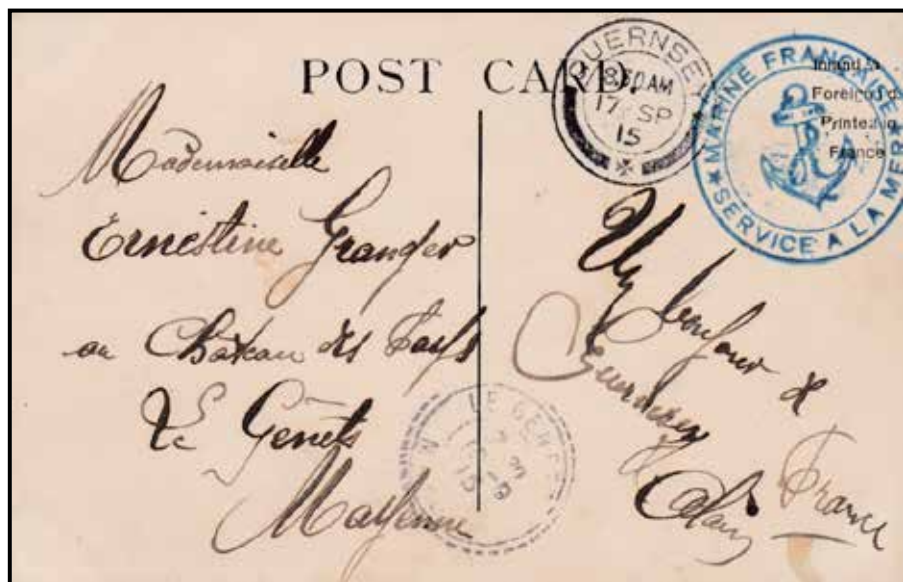 POST CARD.
GUERNSEY
8.30AM
17 SP
15
MARINE FRANÇAISE
★ SERVICE A LA MER ★
Inland &
Foreign
Printed in
France
Mademoiselle
Ernestine Granger
au Château des
Le Genêts
Mayenne
Un bonjour de
Guernesey
France
LE GENE
15